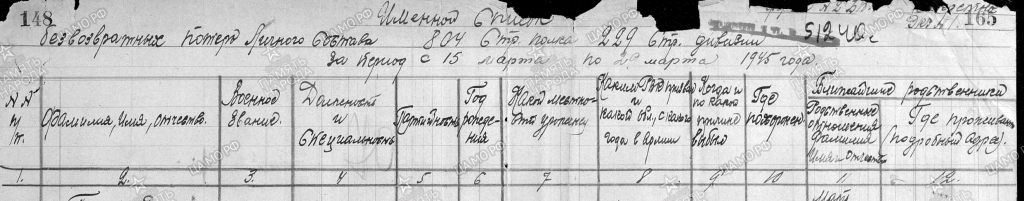 148
Именной список
165
безвозвратных потерь личного состава 804 Стр. полка 229 Стр. дивизии
51240с
за период с 15 марта по 20 марта 1945 года.
N.N п/п.
Фамилия, имя, отчество.
Военное звание.
Должность и специальность
Партийность
Год рождения
Какой местности уроженец
Каким РВК призван и какой обл., с какого года в Армии
Когда и по какой причине выбыл
Где похоронен
Ближайшие родственники
Родственные отношения фамилия имя и отчество
Где проживают (подробный адрес).
1. 2. 3. 4 5 6 7 8 9 10 11 12.